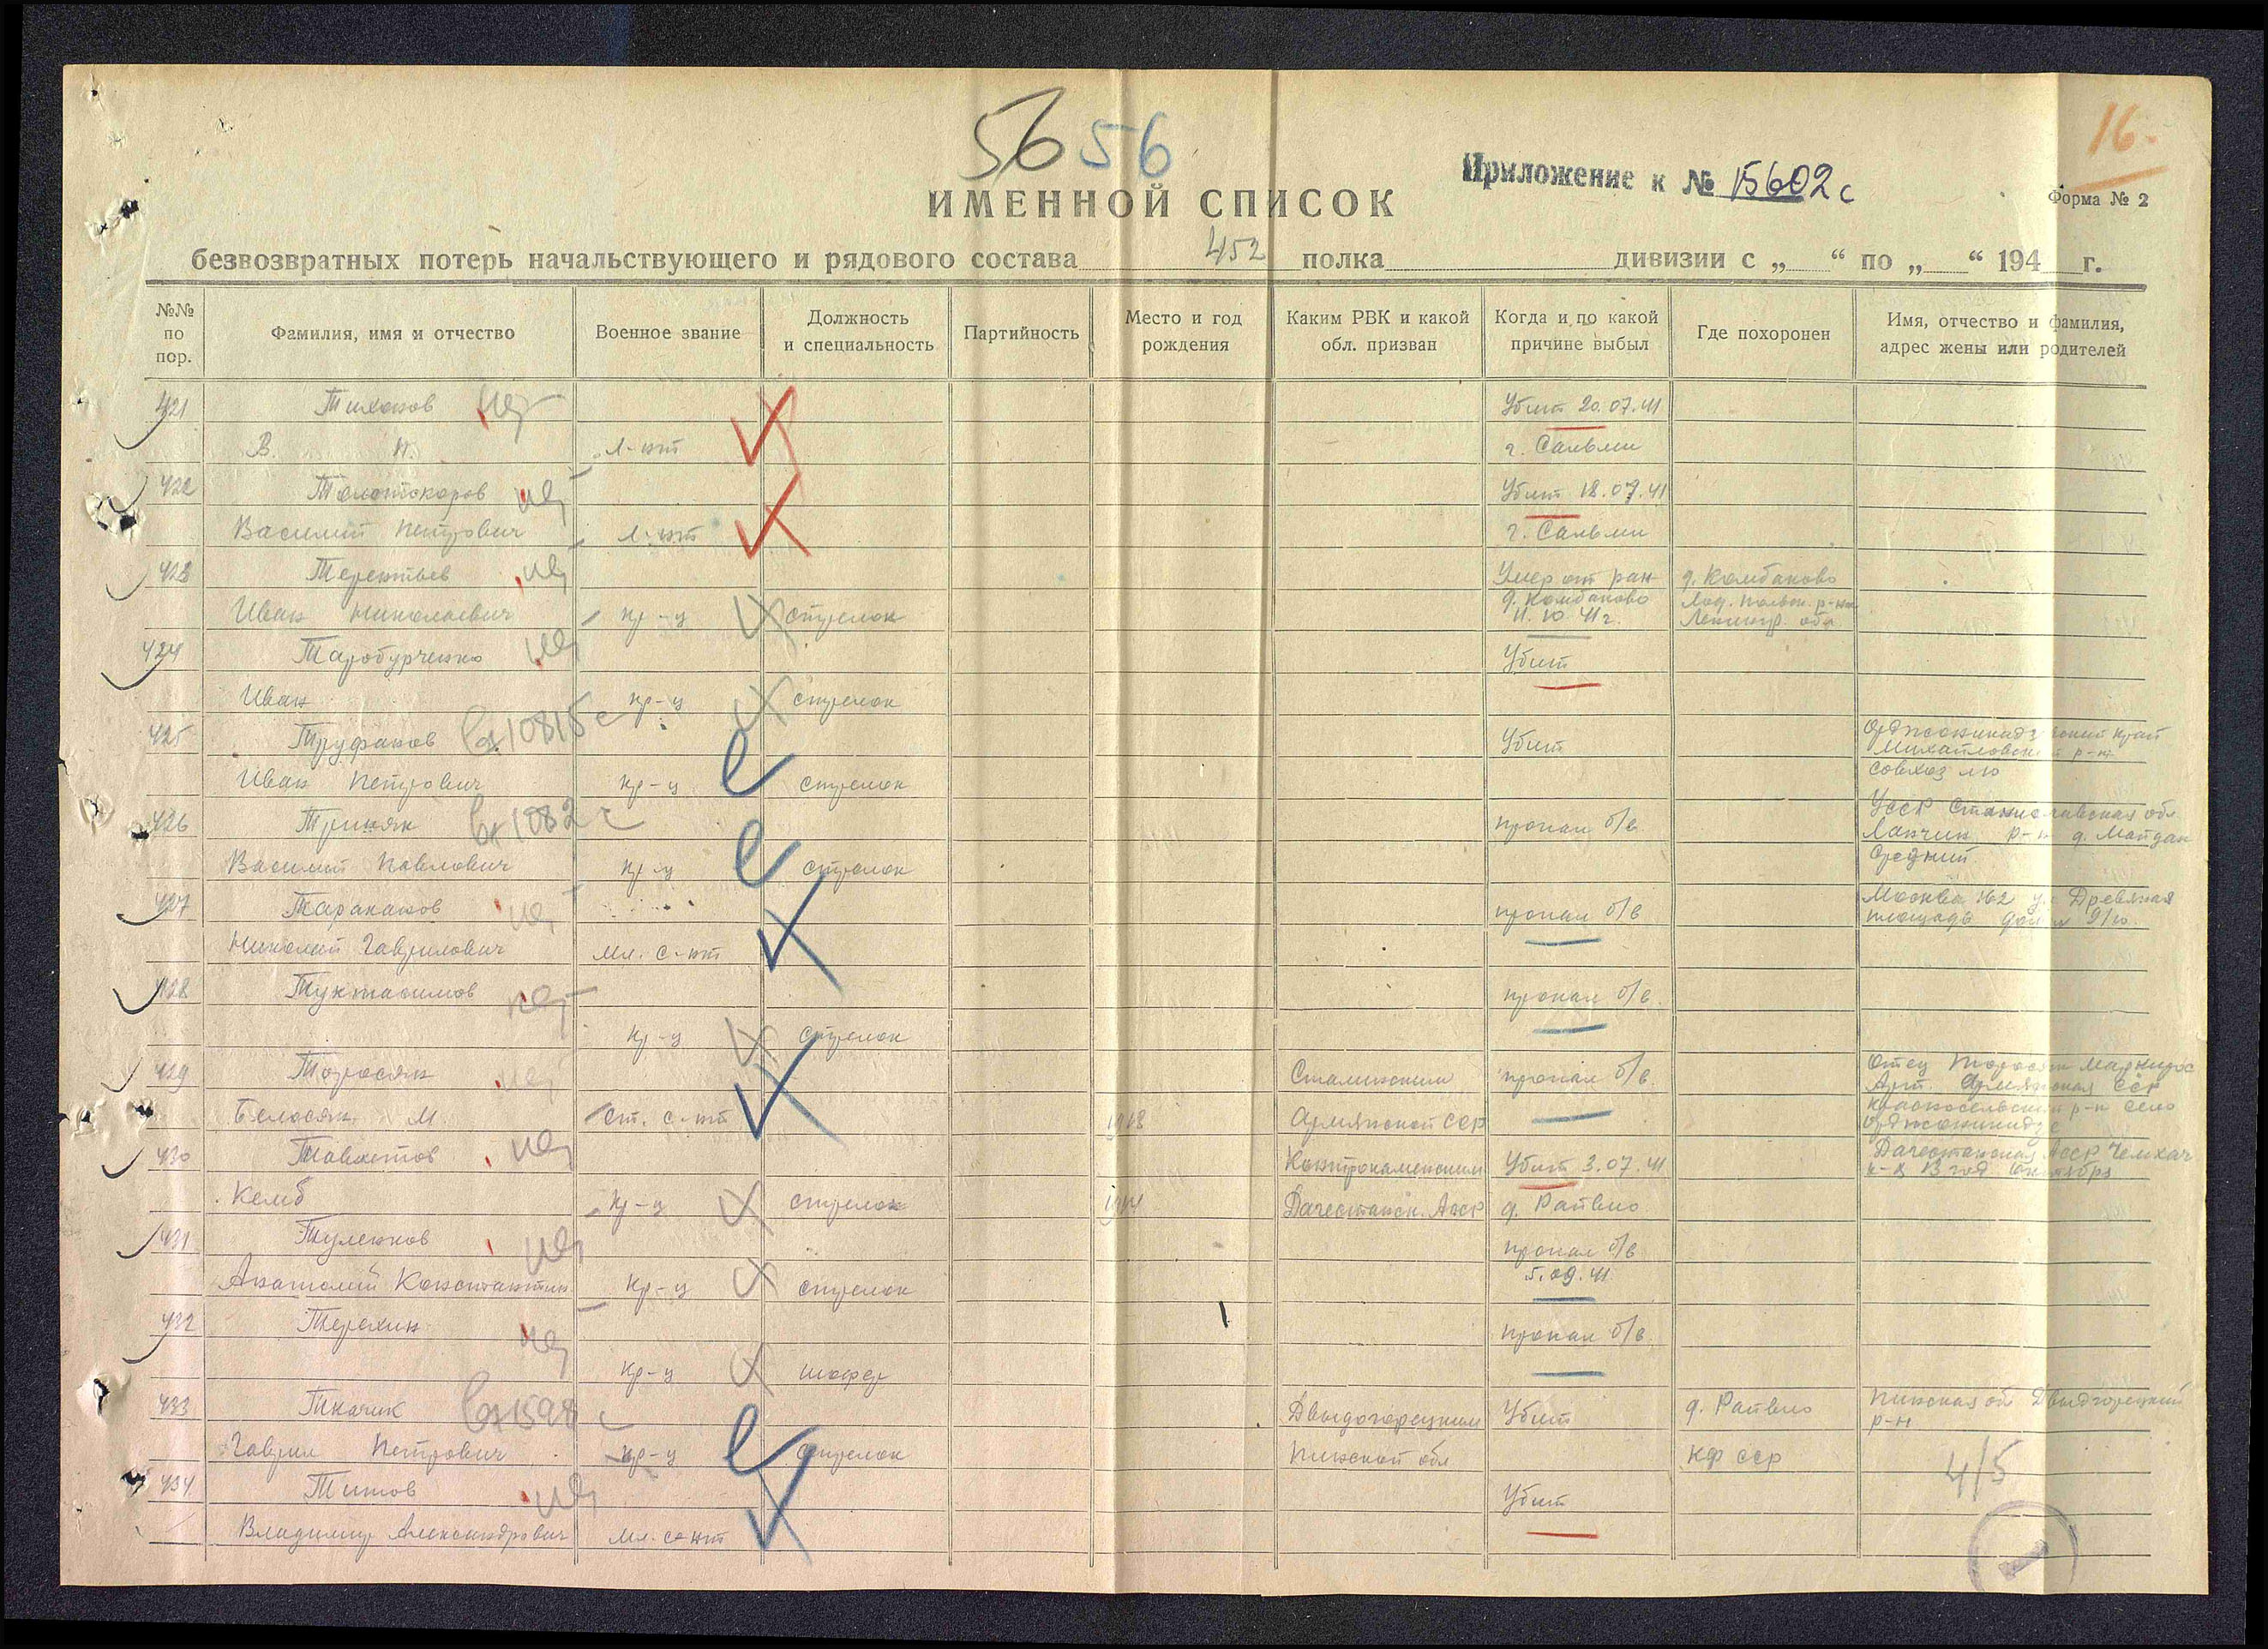 56 56
16.
Приложение к № 15602с
Форма № 2
ИМЕННОЙ СПИСОК
безвозвратных потерь начальствующего и рядового состава 452 полка дивизии с „ “ по „ “ 194 г.
№№ по пор. Фамилия, имя и отчество Военное звание Должность и специальность Партийность Место и год рождения Каким РВК и какой обл. призван Когда и по какой причине выбыл Где похоронен Имя, отчество и фамилия, адрес жены или родителей
421 Тихонов Убит 20.07.41
В. Н. Л-нт г. Сальми
422 Убит 18.07.41
Василий Петрович Л-нт г. Сальми
423 Терентьев Умер от ран д. Камбаково
Иван Николаевич кр-ц стрелок д. Камбаково 11.10.41г. Лод. польск. р-на Ленингр. обл
424 Таробурченко Убит
Иван кр-ц стрелок
425 Труфанов вх10815с Убит Орджоникидзевский край Михайловский р-н
Иван Петрович кр-ц стрелок совхоз
426 Триняк вх1082с пропал б/в УССР Станиславская обл. Ланчин р-н д. Майдан
Василий Павлович кр-ц стрелок Средний
427 Тараканов пропал б/в Москва 162 Древяная площадь дом 9/10.
Николай Гаврилович Мл. с-нт
428 Туктасимов пропал б/в.
кр-ц стрелок
429 Торосян Сталинским пропал б/в. Отец Торосян Маркирос Армянская ССР
Белосян М. Ст. с-нт 1918 Армянской ССР Красносельский р-н село Орджоникидзе
430 Тавлетов Убит 3.07.41 Дагестанская АССР
Кемб кр-ц стрелок 1914 Дагестанск. АССР д. Райвио
431 Туленков пропал б/в
Анатолий Константин кр-ц стрелок 5.09.41
432 Терехин пропал б/в.
кр-ц шофер
433 Ткачик вх1598с Двыдгорецким Убит д. Райвио Пинская обл Двыдгорецкий р-н
Гаврил Петрович кр-ц стрелок Пинской обл КФ ССР
4/5
434 Титов Убит
Владимир Александрович Мл. с-нт